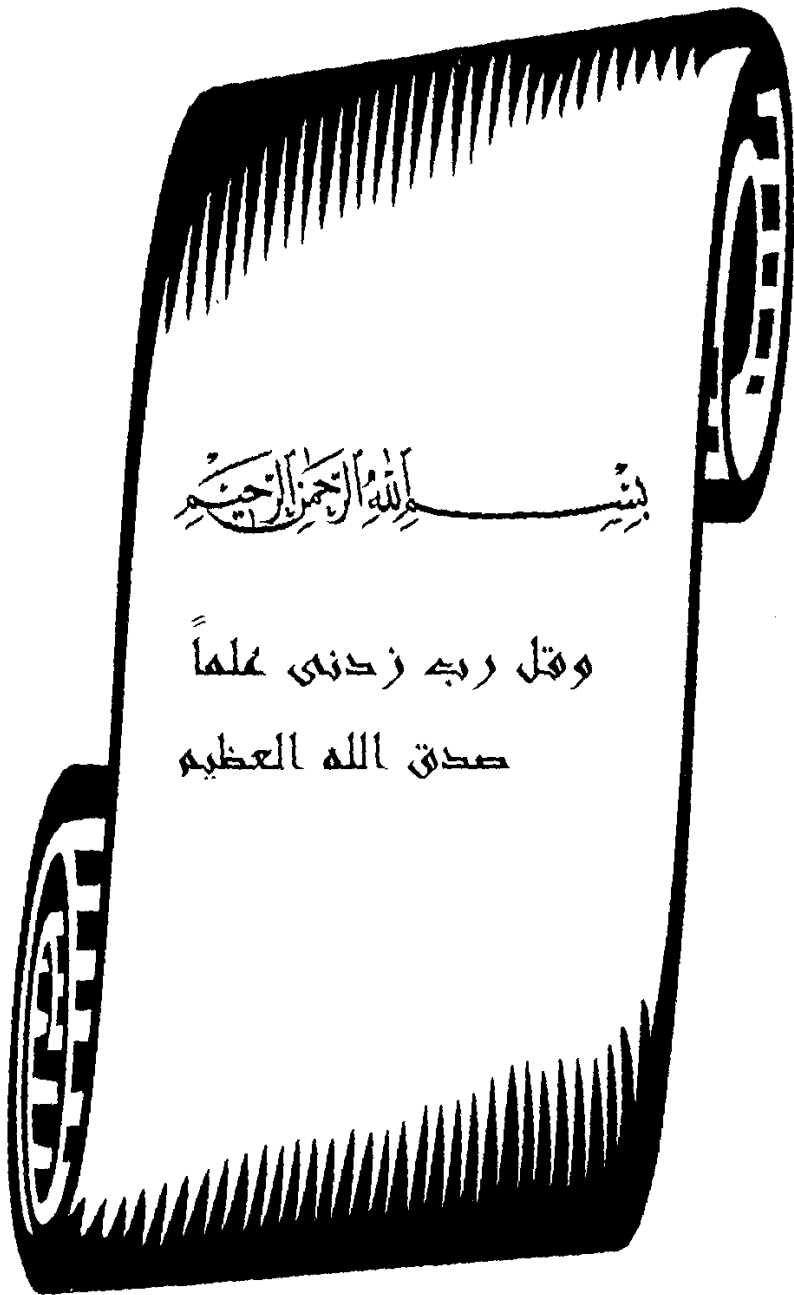 بِسْمِ اللهِ الرَّحْمٰنِ الرَّحِيْمِ
وقل رب زدنى علماً
صدق الله العظيم